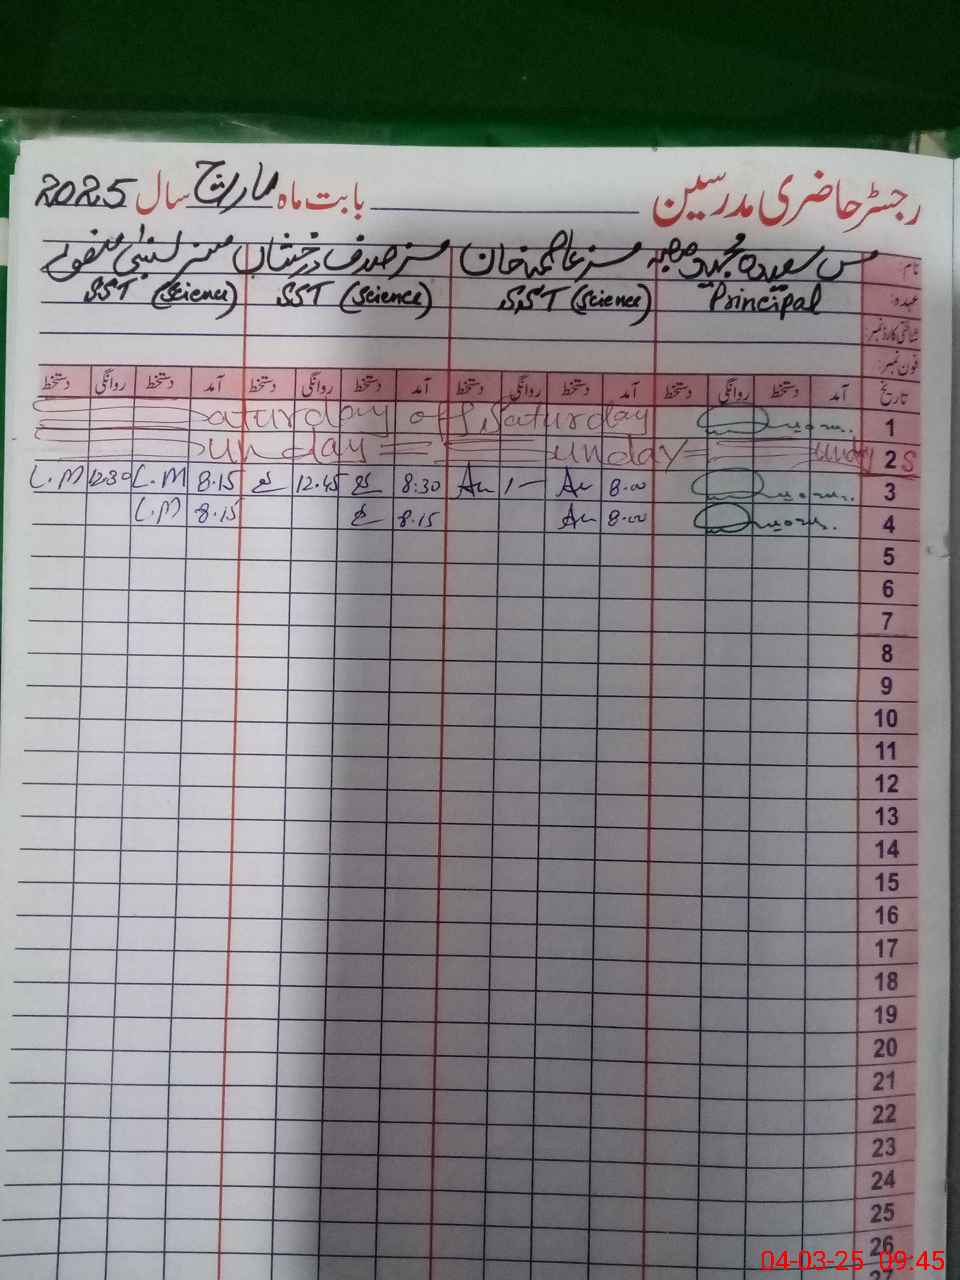 رجسٹر حاضری مدرسین بابت ماہ مارچ سال 2025
نام مس سعیدہ مجید صاحبہ مسز عاصمہ خان مسز صدف درخشاں مسز لبنیٰ
عہدہ: Principal SST (Science) SST (Science) SST (Science)
شناختی کارڈ نمبر:
فون نمبر:
تاریخ آمد دستخط روانگی دستخط آمد دستخط روانگی دستخط آمد دستخط روانگی دستخط آمد دستخط روانگی دستخط
1 Saturday off Saturday
2 S Sunday Sunday Sunday
3 8.00 Au 1- Au 8:30 12.45 8.15 L.M 12.30 L.M
4 8.00 Au 8.15 8.15 L.M
5
6
7
8
9
10
11
12
13
14
15
16
17
18
19
20
21
22
23
24
25
26
27
04-03-25 09:45